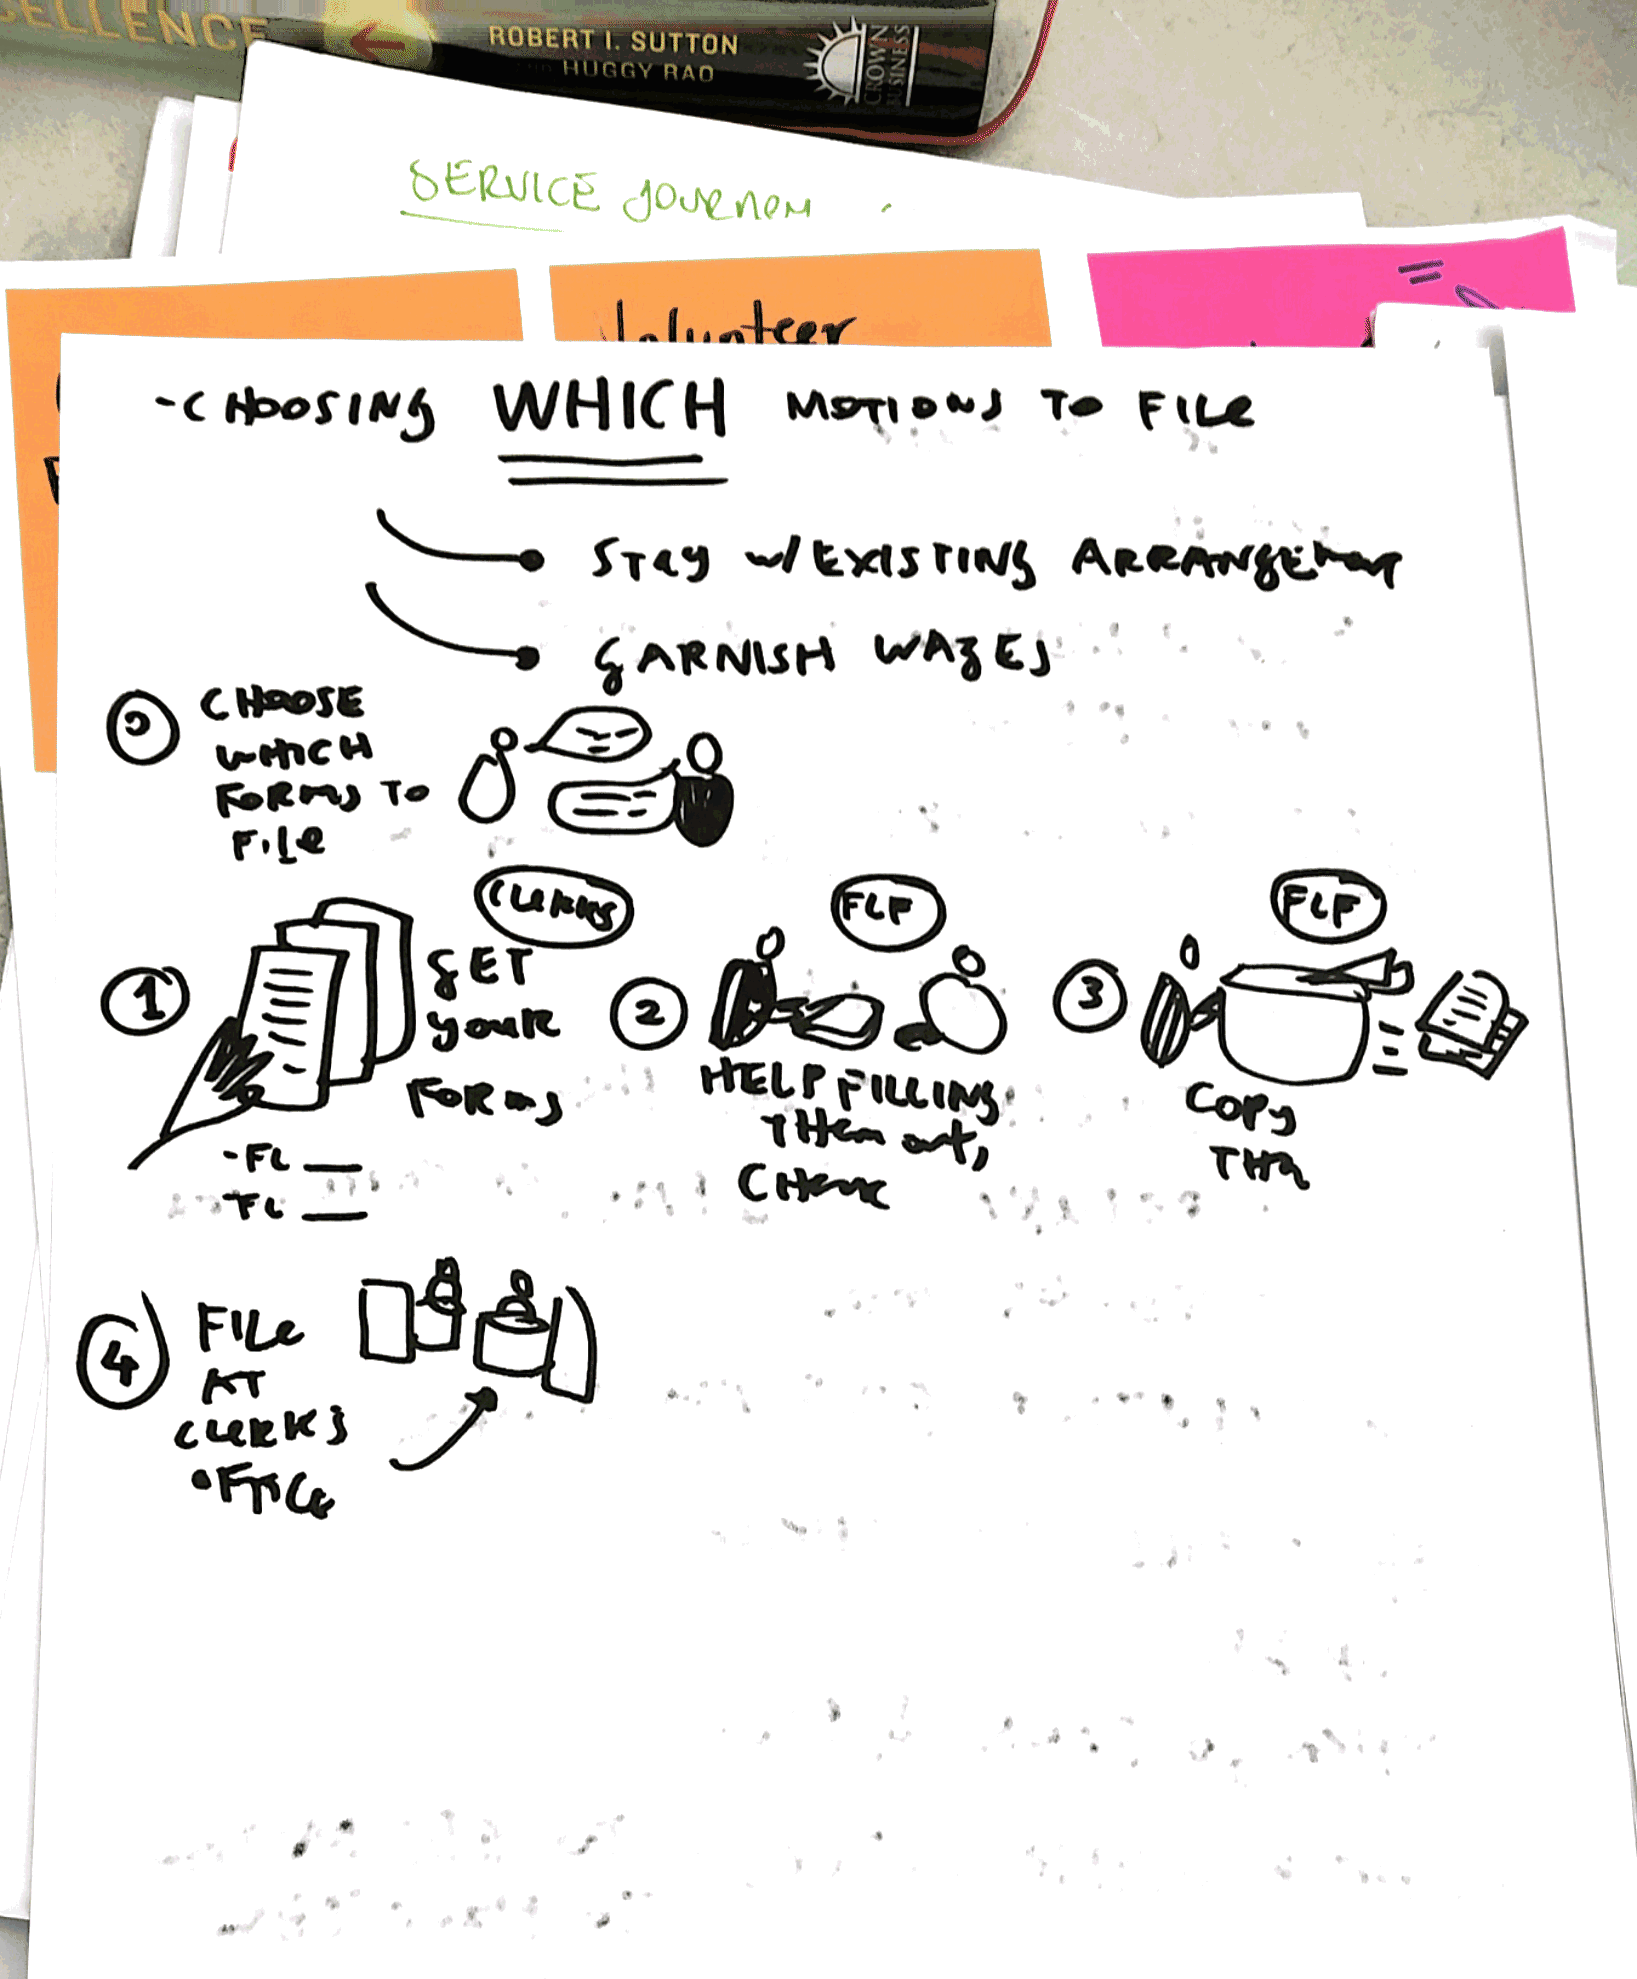 ELLENCE
ROBERT I. SUTTON
HUGGY RAO
CROWN
BUSINESS
SERVICE JOURNEM
Volunteer
-CHOOSING WHICH MOTIONS TO FILE
STAY w/ EXISTING ARRANGEMENT
GARNISH WAGES
0 CHOOSE
WHICH
FORMS TO
FILE
CLERKS
1 GET
YOUR
FORMS
-FL __
-FL __
FLF
2
HELP FILLING
THEM out,
FLF
3
COPY
4 FILE
AT
CLERKS
OFFICE